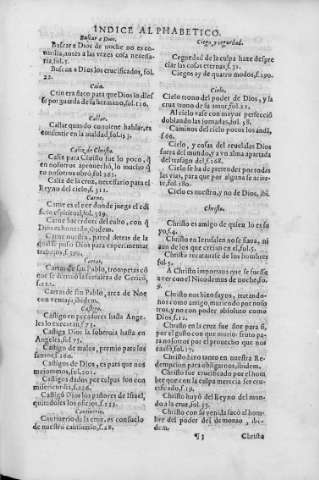 INDICE ALPHABETICO.
Buscar a Dios.
Buscar a Dios de noche no es co-
media, antes a las vezes cosa necessa-
ria, fol.5.
Buscan a Dios los crucificados, fol.
22.
Cain.
Cain era flaco para que Dios le dies
se por guarda de su hermano, fol.126.
Callar.
Callar quando conuiene hablar, es
consentir en la maldad, fol.53.
Caliz de Christo.
Caliz para Christo fue lo poco, q̃
en nosotros aprouecho, lo mucho q̃
en nosotros trabajo, fol.205.
Caliz de la cruz, necessario para el
Reyno del cielo, f.312.
Carne.
Carne es el
espiritual, fol.189.
Carne
Dios encomiẽda, ibidem.
Carne nuestra, pared detras de la
qual se puso Dios para experimentar
trabajo, f.290.
Cartas.
Cartas de san Pablo, trompetas cõ
que se derriban las cercas de Gerico,
fol.22.
Cartas de san Pablo, arca de Noe
con ventaja, ibidem.
Castigo.
Castigo en pecadores hasta Ange-
les lo executan, f.73.
Castiga Dios la soberuia hasta en
Angeles, fol.75.
Castigo de malos, premio para los
santos, f.160.
Castigos de Dios, es para que nos
mejoremos, fol.201.
Castigos dados por culpas son con
misericordia, f.226.
Castigó Dios los pastores de Israel,
quitandoles los oficios, f.222.
Cautiuerio.
Cautiuerio de la cruz, es consuelo
de nuestro cautiuerio, f.28.
Ciego, y ceguedad.
Ceguedad de la culpa haze despre
ciar las cosas eternas, f.31.
Ciegos ay de quatro modos, f.190.
Cielo.
Cielo trono del poder de Dios, y la
cruz trono de su amor, fol.22.
Al cielo vase con mayor perfecció
doblando las jornadas, fol.38.
Caminos del cielo pocos los andã,
f.66.
Cielo, y cosas del reueladas Dios
fuera del mundo, y a vn alma apartada
del trafago del, f.168.
Cielo se ha de pretender por todas
las vias, para que por alguna se acier-
te, fol.180.
Cielo es nuestro, y no de Dios, ibi.
Christo.
Christo es amigo de quien lo es su
yo, f.4.
Christo en Jerusalen no se fiaua, ni
aun de los que creian en el, f.5.
Christo recatauase de los hombres
fol.5.
A Christo importaua que se fuesse
a ver con el Nicodemus de noche, fo.
9.
Christo nos hizo suyos, tratando-
nos como amigo, muriendo por noso
tros, y no con poder absoluto como
Dios, f.12.
Christo en la cruz fue don para si,
por el gusto con que murio: fruto pa-
ra nosotros por el prouecho que nos
causò, fol.17.
Christo hizo tanto en nuestra Re-
dempcion para obligarnos, ibidem.
Christo fue crucificado por el hom
bre que con la culpa merecia ser cru-
cificado, f.19.
Christo huyó del Reyno del mun-
do a la cruz, fol.35.
Christo con su venida sacó al hom-
bre del poder del demonio, ibi-
dem.
¶3
Christo